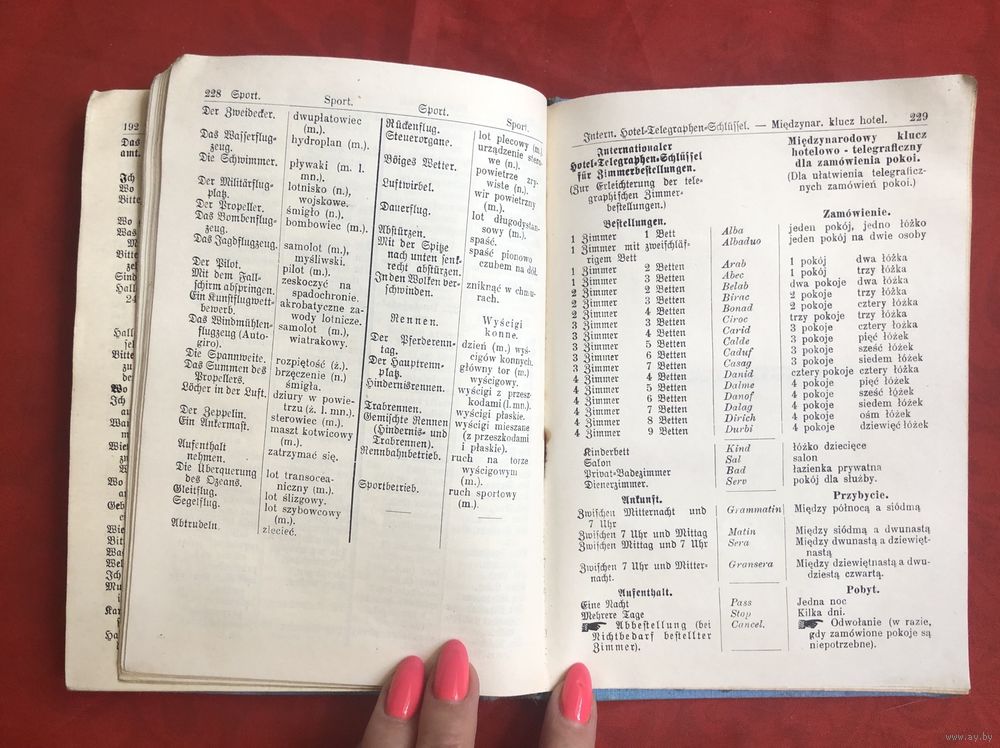 192
Das
amt.
Ich
Wo
Bitte
Wo
Was
Hall
24
Hall
Bitte
Wo
Ich
Wo
Wie
Bitt
Was
Wel
Ich
228 Sport.
Sport.
Der Zweidecker.
Das Wasserflug-
zeug.
Die Schwimmer.
Der Militärflug-
platz.
Der Propeller.
Das Bombenflug-
zeug.
Das Jagdflugzeug.
Der Pilot.
Mit dem Fall-
schirm abspringen.
Ein Kunstflugwett-
bewerb.
Das Windmühlen-
flugzeug (Auto-
giro).
Die Spannweite.
Das Summen des
Propellers.
Löcher in der Luft.
Der Zeppelin.
Ein Ankermast.
Aufenthalt
nehmen.
Die Überquerung
des Ozeans.
Gleitflug.
Segelflug.
Abtrudeln.
dwupłatowiec
(m.).
hydroplan (m.).
pływaki (m. l.
mn.).
lotnisko (n.),
wojskowe.
śmigło (n.).
bombowiec (m.).
samolot (m.),
myśliwski.
pilot (m.).
zeskoczyć na
spadochronie.
akrobatyczne za-
wody lotnicze.
samolot (m.),
wiatrakowy.
rozpiętość (ż.).
brzęczenie (n.)
śmigła.
dziury w powie-
trzu (ż. l. mn.).
sterowiec (m.).
maszt kotwicowy
(m.).
zatrzymać się.
lot transocea-
niczny (m.).
lot ślizgowy.
lot szybowcowy
(m.).
zlecieć.
Sport.
Sport.
Rückenflug.
Steuerorgane.
Böiges Wetter.
Luftwirbel.
Dauerflug.
Abstürzen.
Mit der Spitze
nach unten senk-
recht abstürzen.
In den Wolken ver-
schwinden.
Rennen.
Der Pferderenn-
tag.
Der Hauptrenn-
platz.
Hindernisrennen.
Trabrennen.
Gemischte Rennen
(Hindernis- und
Trabrennen).
Rennbahnbetrieb.
Sportbetrieb.
lot plecowy (m.)
urządzenie stero-
we (n.).
powietrze zry-
wiste (n.).
wir powietrzny
(m.).
lot długodystan-
sowy (m.).
spaść.
spaść pionowo
czubem na dół.
zniknąć w chmu-
rach.
Wyścigi
konne.
dzień (m.) wyś-
cigów konnych.
główny tor (m.)
wyścigowy.
wyścigi z przesz-
kodami (l. mn.).
wyścigi płaskie.
wyścigi mieszane
(z przeszkodami
i płaskie).
ruch na torze
wyścigowym
(m.).
ruch sportowy
(m.).
Intern. Hotel-Telegraphen-Schlüssel. — Międzynar. klucz hotel. 229
Internationaler
Hotel-Telegraphen-Schlüssel
für Zimmerbestellungen.
(Zur Erleichterung der tele-
graphischen Zimmer-
bestellungen.)
Międzynarodowy klucz
hotelowo - telegraficzny
dla zamówienia pokoi.
(Dla ułatwienia telegraficz-
nych zamówień pokoi.)
Bestellungen.
Zamówienie.
1 Zimmer 1 Bett Alba jeden pokój, jedno łóżko
1 Zimmer mit zweischläf- Albaduo jeden pokój na dwie osoby
rigem Bett
1 Zimmer 2 Betten Arab 1 pokój dwa łóżka
1 Zimmer 3 Betten Abec 1 pokój trzy łóżka
2 Zimmer 2 Betten Belab dwa pokoje dwa łóżka
2 Zimmer 3 Betten Birac 2 pokoje trzy łóżka
2 Zimmer 4 Betten Bonad 2 pokoje cztery łóżka
3 Zimmer 3 Betten Ciroc trzy pokoje trzy łóżka
3 Zimmer 4 Betten Carid 3 pokoje cztery łóżka
3 Zimmer 5 Betten Calde 3 pokoje pięć łóżek
3 Zimmer 6 Betten Caduf 3 pokoje sześć łóżek
3 Zimmer 7 Betten Casag 3 pokoje siedem łóżek
4 Zimmer 4 Betten Danid cztery pokoje cztery łóżka
4 Zimmer 5 Betten Dalme 4 pokoje pięć łóżek
4 Zimmer 6 Betten Danof 4 pokoje sześć łóżek
4 Zimmer 7 Betten Dalag 4 pokoje siedem łóżek
4 Zimmer 8 Betten Dirich 4 pokoje ośm łóżek
4 Zimmer 9 Betten Durbi 4 pokoje dziewięć łóżek
Kinderbett Kind łóżko dziecięce
Salon Sal salon
Privat-Badezimmer Bad łazienka prywatna
Dienerzimmer. Serv pokój dla służby.
Ankunft.
Przybycie.
Zwischen Mitternacht und Grammatin Między północą a siódmą
7 Uhr
Zwischen 7 Uhr und Mittag Matin Między siódmą a dwunastą
Zwischen Mittag und 7 Uhr Sera Między dwunastą a dziewięt-
nastą
Zwischen 7 Uhr und Mitter- Gransera Między dziewiętnastą a dwu-
nacht. dziestą czwartą.
Aufenthalt.
Pobyt.
Eine Nacht Pass Jedna noc
Mehrere Tage Stop Kilka dni.
Abbestellung (bei Cancel. Odwołanie (w razie,
Nichtbedarf bestellter gdy zamówione pokoje są
Zimmer). niepotrzebne).
www.ay.by